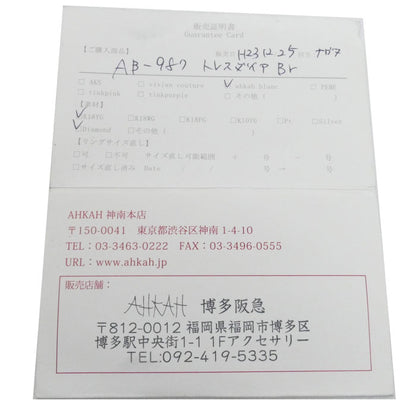 販売証明書
Guarantee Card
【ご購入商品】 販売日 H23.12.25 担当
AB-987 トレスダイア Br
□ AKS □ vivian couture ☑ ahkah blanc □ PEBE
□ tinkpink □ tinkpurple □ その他 ( )
【素材】
☑ K18YG □ K18WG □ K18PG □ K10YG □ Pt □ Silver
☑ Diamond □ その他 ( )
【リングサイズ直し】
□ 可 □ 不可 サイズ直し可能範囲 ( 号 ~ 号 )
□ サイズ直し済み Date / / 号 → 号
AHKAH 神南本店
〒150-0041 東京都渋谷区神南 1-4-10
TEL:03-3463-0222 FAX:03-3496-0555
URL:www.ahkah.jp
販売店舗:
AHKAH 博多阪急
〒812-0012 福岡県福岡市博多区
博多駅中央街1-1 1Fアクセサリー
TEL:092-419-5335